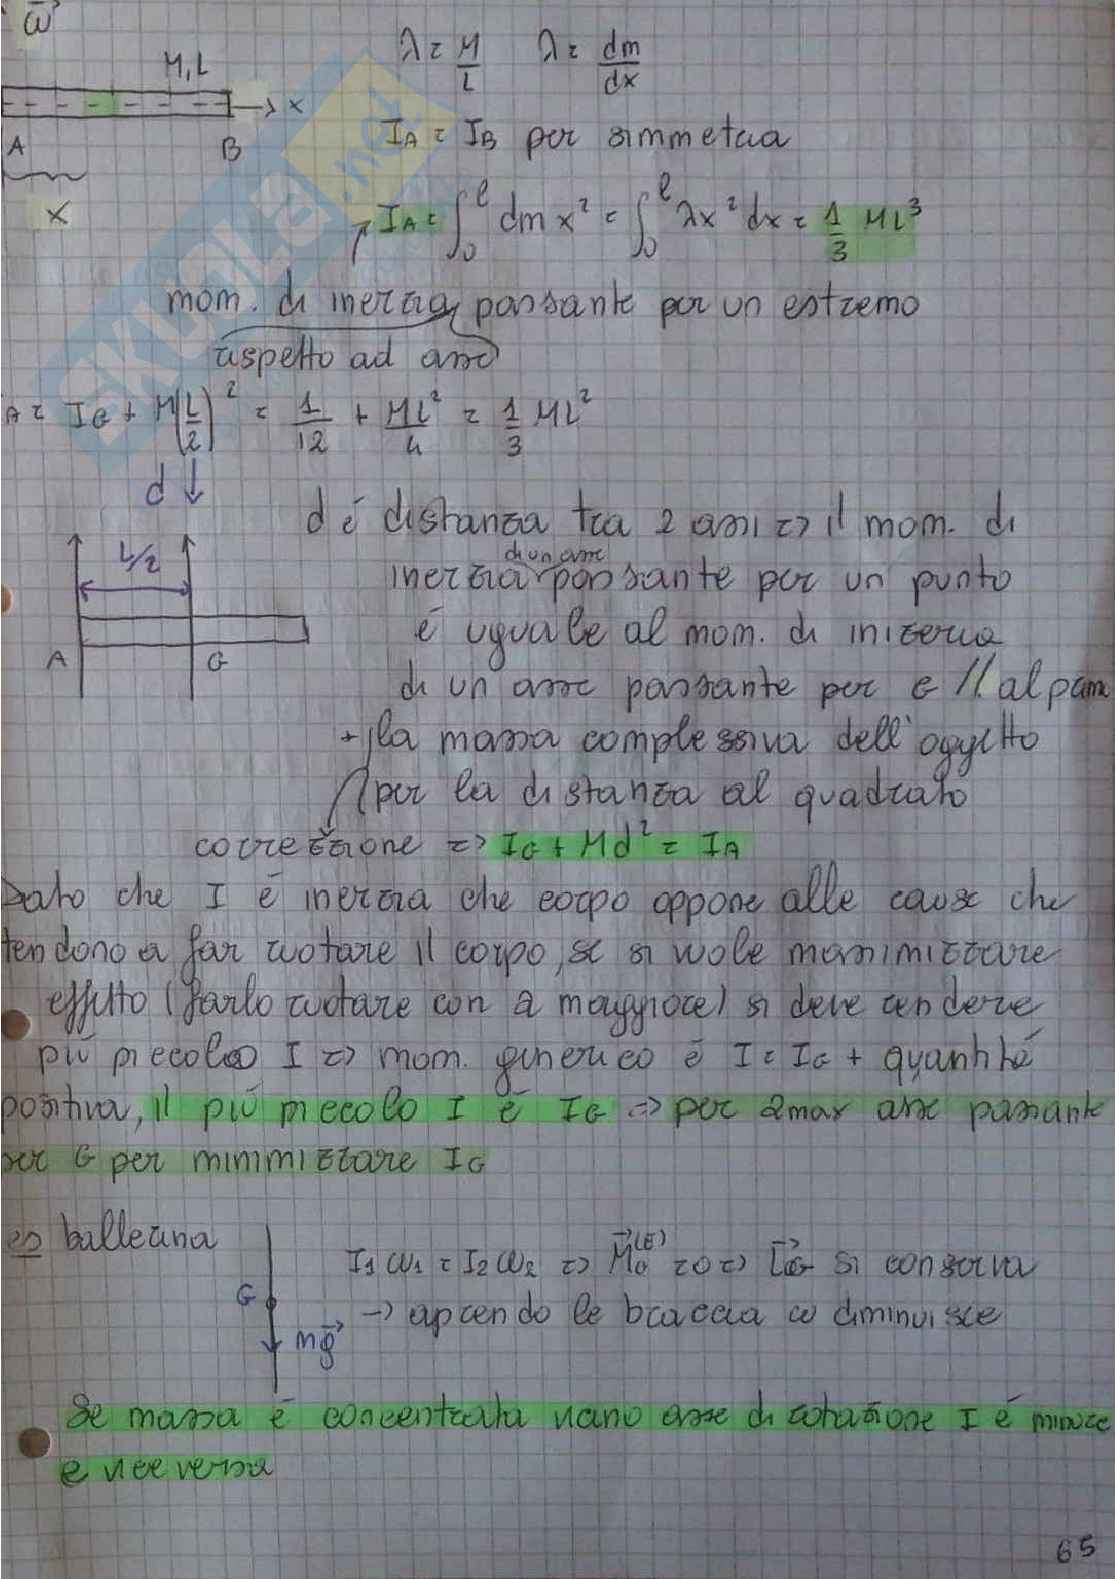 ω⃗
M,L
λ = M/L   λ = dm/dx
x
A B
I_A = I_B per simmetria
x
I_A = ∫₀ˡ dm x² = ∫₀ˡ λx² dx = 1/3 ML³
mom. di inerzia passante per un estremo
rispetto ad asse
A = I_G + M(L/2)² = 1/12 + ML²/4 = 1/3 ML²
d ↓
d è distanza tra 2 assi => il mom. di
L/2
di un asse
inerzia passante per un punto
è uguale al mom. di inizeria
A G
di un asse passante per G // al primo
+ la massa complessiva dell'oggetto
per la distanza al quadrato
correzione => I_G + Md² = I_A
Dato che I è inerzia che corpo oppone alle cause che
tendono a far ruotare il corpo, se si vuole massimizzare
effetto (farlo ruotare con a maggiore) si deve rendere
più piccolo I => mom. generico è I = I_G + quantità
positiva, il più piccolo I è I_G => per amax asse passante
per G per minimizzare I_G
es ballerina
I₁ω₁ = I₂ω₂ => M⃗_G^(E) = 0 => L⃗_G si conserva
G
-> aprendo le braccia ω diminuisce
mg⃗
Se massa è concentrata vicino asse di rotazione I è minore
e viceversa
65
SKUOLA.net